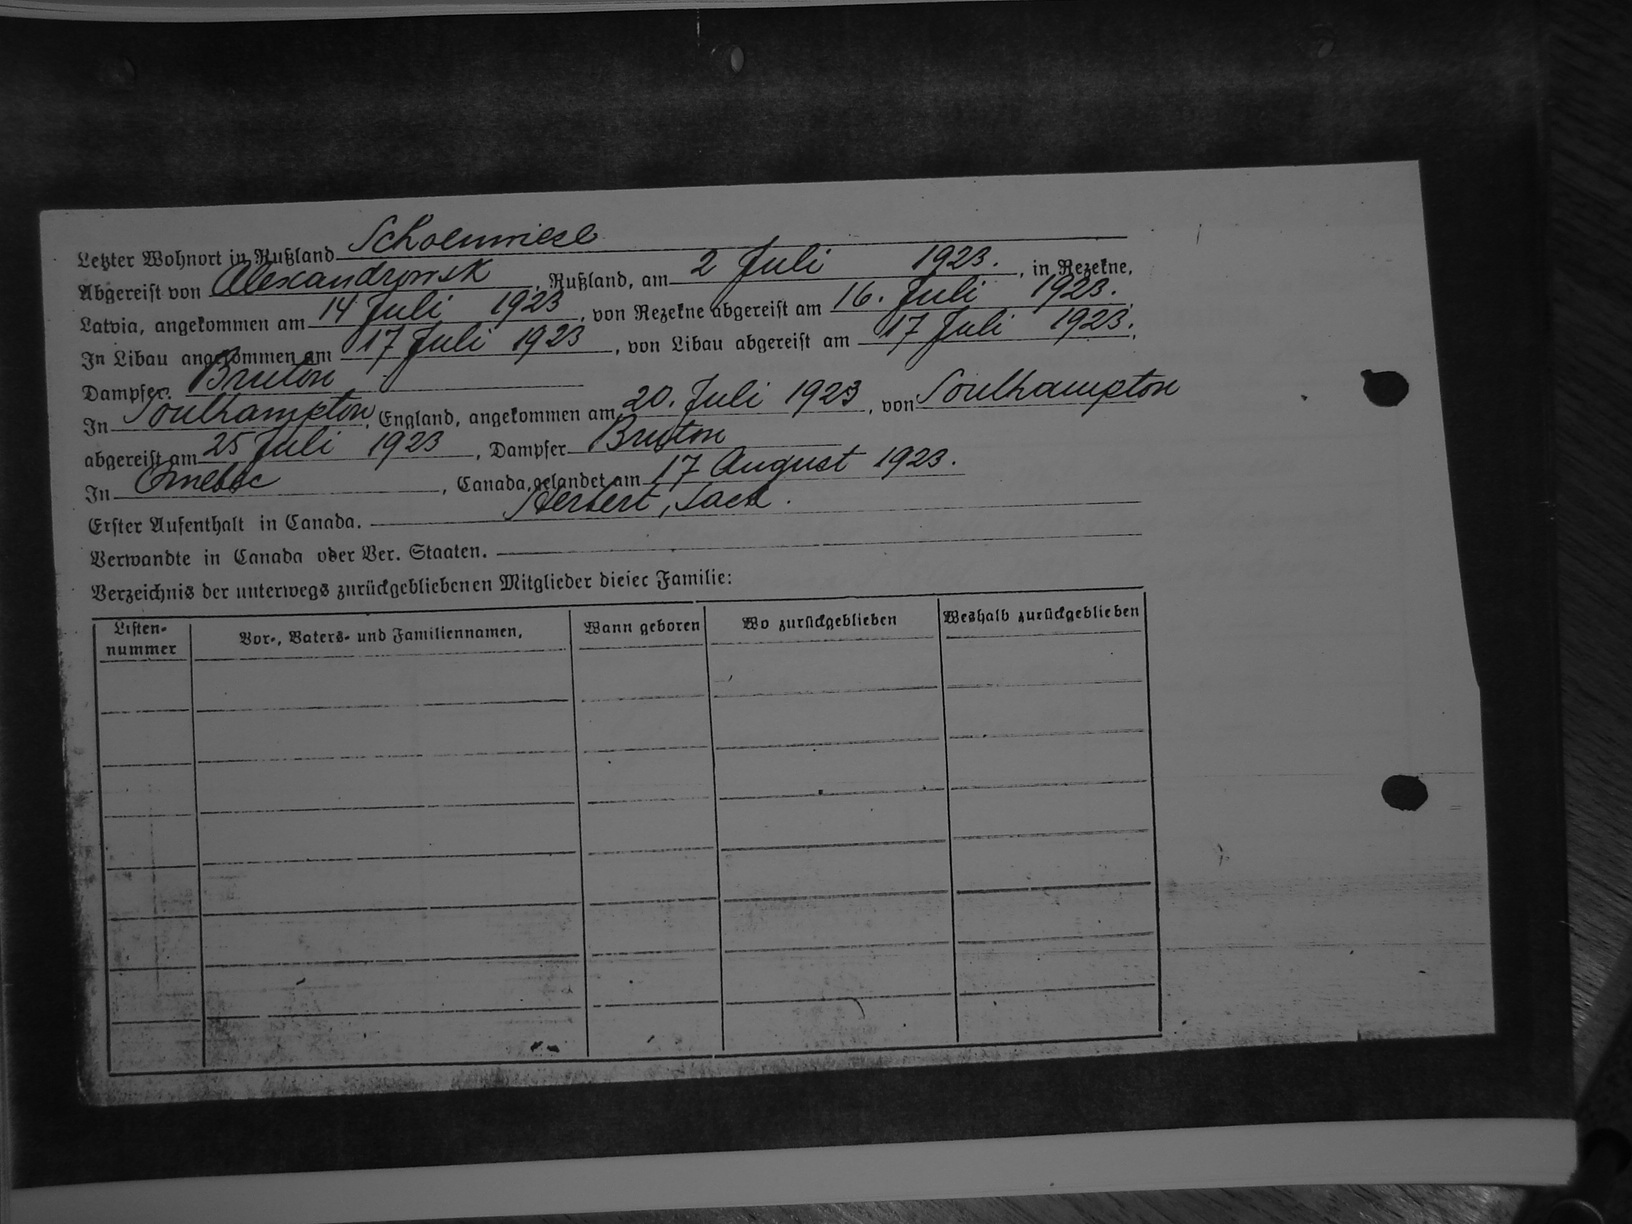 Letzter Wohnort in Rußland Schoenwiese
Abgereist von Alexandrowsk, Rußland, am 2 Juli 1923., in Rezekne,
Latvia, angekommen am 14 Juli 1923, von Rezekne abgereist am 16. Juli 1923.
In Libau angekommen am 17 Juli 1923, von Libau abgereist am 17 Juli 1923.
Dampfer. Bruton
In Southampton, England, angekommen am 20. Juli 1923, von Southampton
abgereist am 25 Juli 1923, Dampfer Bruton
In Quebec, Canada, gelandet am 17 August 1923.
Erster Aufenthalt in Canada. Herbert, Sack.
Verwandte in Canada oder Ver. Staaten.
Verzeichnis der unterwegs zurückgebliebenen Mitglieder dieser Familie:
Listen-nummer Vor-, Vaters- und Familiennamen, Wann geboren Wo zurückgeblieben Weshalb zurückgeblieben